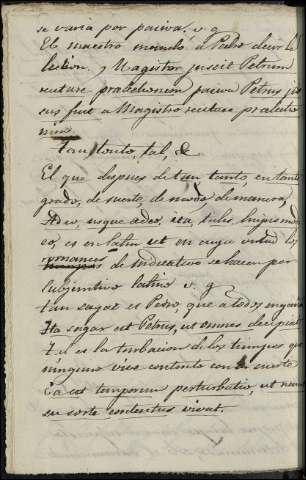 se varia por pasiva, v. g.
El maestro mandó a Pedro decir la
leccion. y Magister jussit Petrum
recitare praelectionem pasiva Petrus jus
sus fuit a Magistro recitare praelectio
nem.
Tan, tanto, tal, &
El que despues de tan, tanto, en tanto
grado, de suerte, de modo, de manera,
Adeo, usque adeo, ita, talis, hujusmo
di, es en latin ut en cuya virtud los
romances de indicativo se hacen por
subjuntivo latino v. g
tan sagaz es Pedro, que a todos engaña
Ita sagax est Petrus, ut omnes decipiat
Tal es la turbacion de los tiempos que
ninguno vive contento con su suerte
Ea est temporum perturbatio, ut nemo
sua sorte contentus vivat.